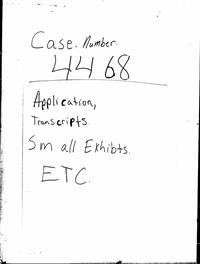 Case. Number.
4468
Application,
Transcripts.
Small Exhibts.
ETC.